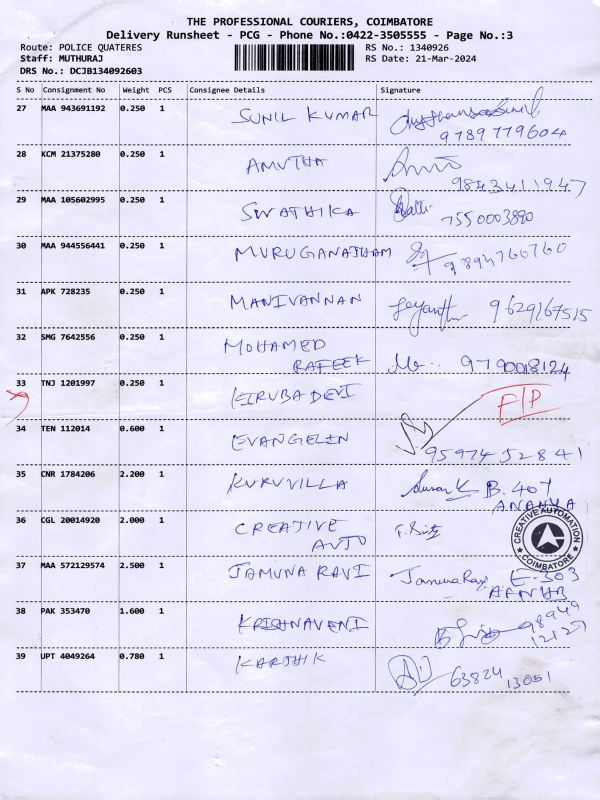 THE PROFESSIONAL COURIERS, COIMBATORE
Delivery Runsheet - PCG - Phone No.:0422-3505555 - Page No.:3
Route: POLICE QUATERES RS No.: 1340926
Staff: MUTHURAJ RS Date: 21-Mar-2024
DRS No.: DCJB134092603
S No Consignment No Weight PCS Consignee Details Signature
27 MAA 943691192 0.250 1 SUNIL KUMAR
9789779604
28 KCM 21375280 0.250 1 AMUTHA
9843411947
29 MAA 105602995 0.250 1 SWATHIKA
7550003890
30 MAA 944556441 0.250 1 MURUGANATHAM 9894760760
31 APK 728235 0.250 1 MANIVANNAN Jeyanthi 9629167515
32 SMG 7642556 0.250 1 MOHAMED
RAFEEK 9790018124
33 TNJ 1201997 0.250 1 KIRUBA DEVI F/P
34 TEN 112014 0.600 1 EVANGELIN
9597452841
35 CNR 1784206 2.200 1 KURUVILLA Susan K B. 407
ANANYA
36 CGL 20014920 2.000 1 CREATIVE
AUTO
CREATIVE AUTOMATION
COIMBATORE
37 MAA 572129574 2.500 1 JAMUNA RAVI Jamuna Ravi E-503
38 PAK 353470 1.600 1 KRISHNAVENI 98949
12127
39 UPT 4049264 0.780 1 KARTHIK 63824
13051